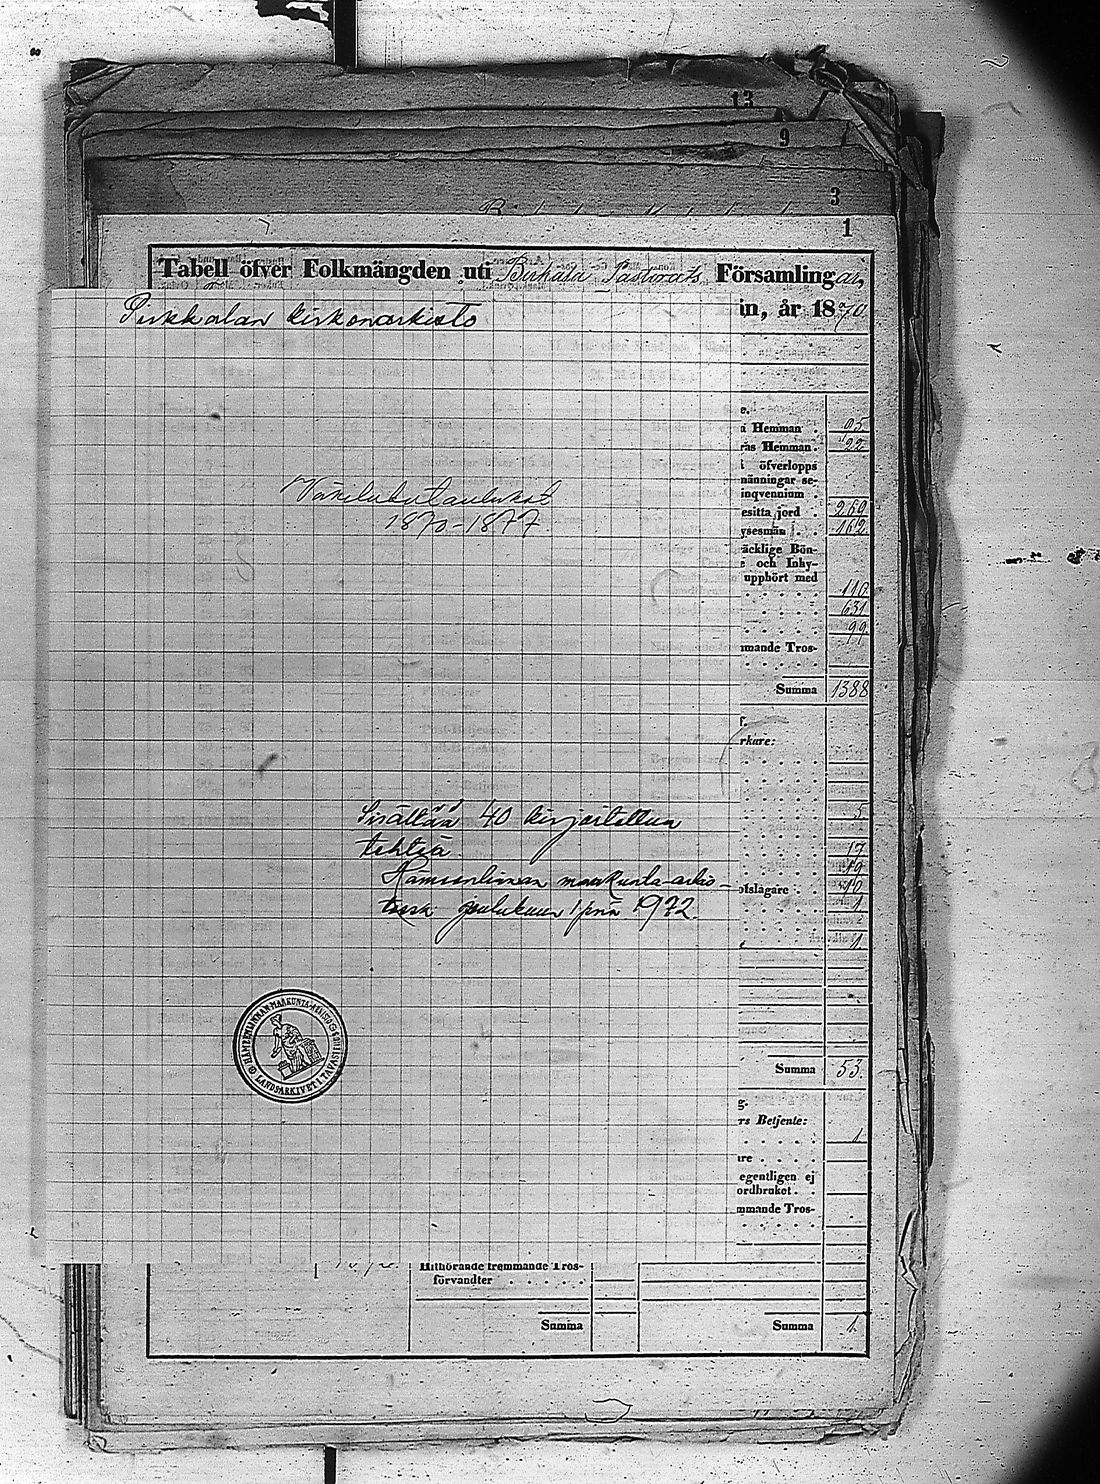 13
9
3
1
Tabell öfver Folkmängden uti Birkala Pastorats Församlingar,
Pirkkalan kirkonarkisto
in, år 1870.
e.
å Hemman . 95
rås Hemman . 22
öfverlopps
männingar se-
inqvennium .
esitta jord . 269
ysesmän . . 162
äcklige Bön-
e och Inhy-
upphört med
110
631
99
mmande Tros-
Summa 1388
Väkilukutaulukot
1870-1877
f.
rkare:
5
17
19
ofslagare . . 10
1
1
Sisältää 40 kirjoitettua
lehteä
Hämeenlinnan maakunta-arkis-
tossa joulukuun 1 pnä 1972.
HÄMEENLINNAN MAAKUNTA-ARKISTO
LANDSARKIVET I TAVASTEHUS
Summa 53.
g.
rs Betjente:
1
are . . . .
egentligen ej
ordbruket . .
mmande Tros-
Hithörande främmande Tros-
förvandter . . . . . .
Summa
Summa 1.